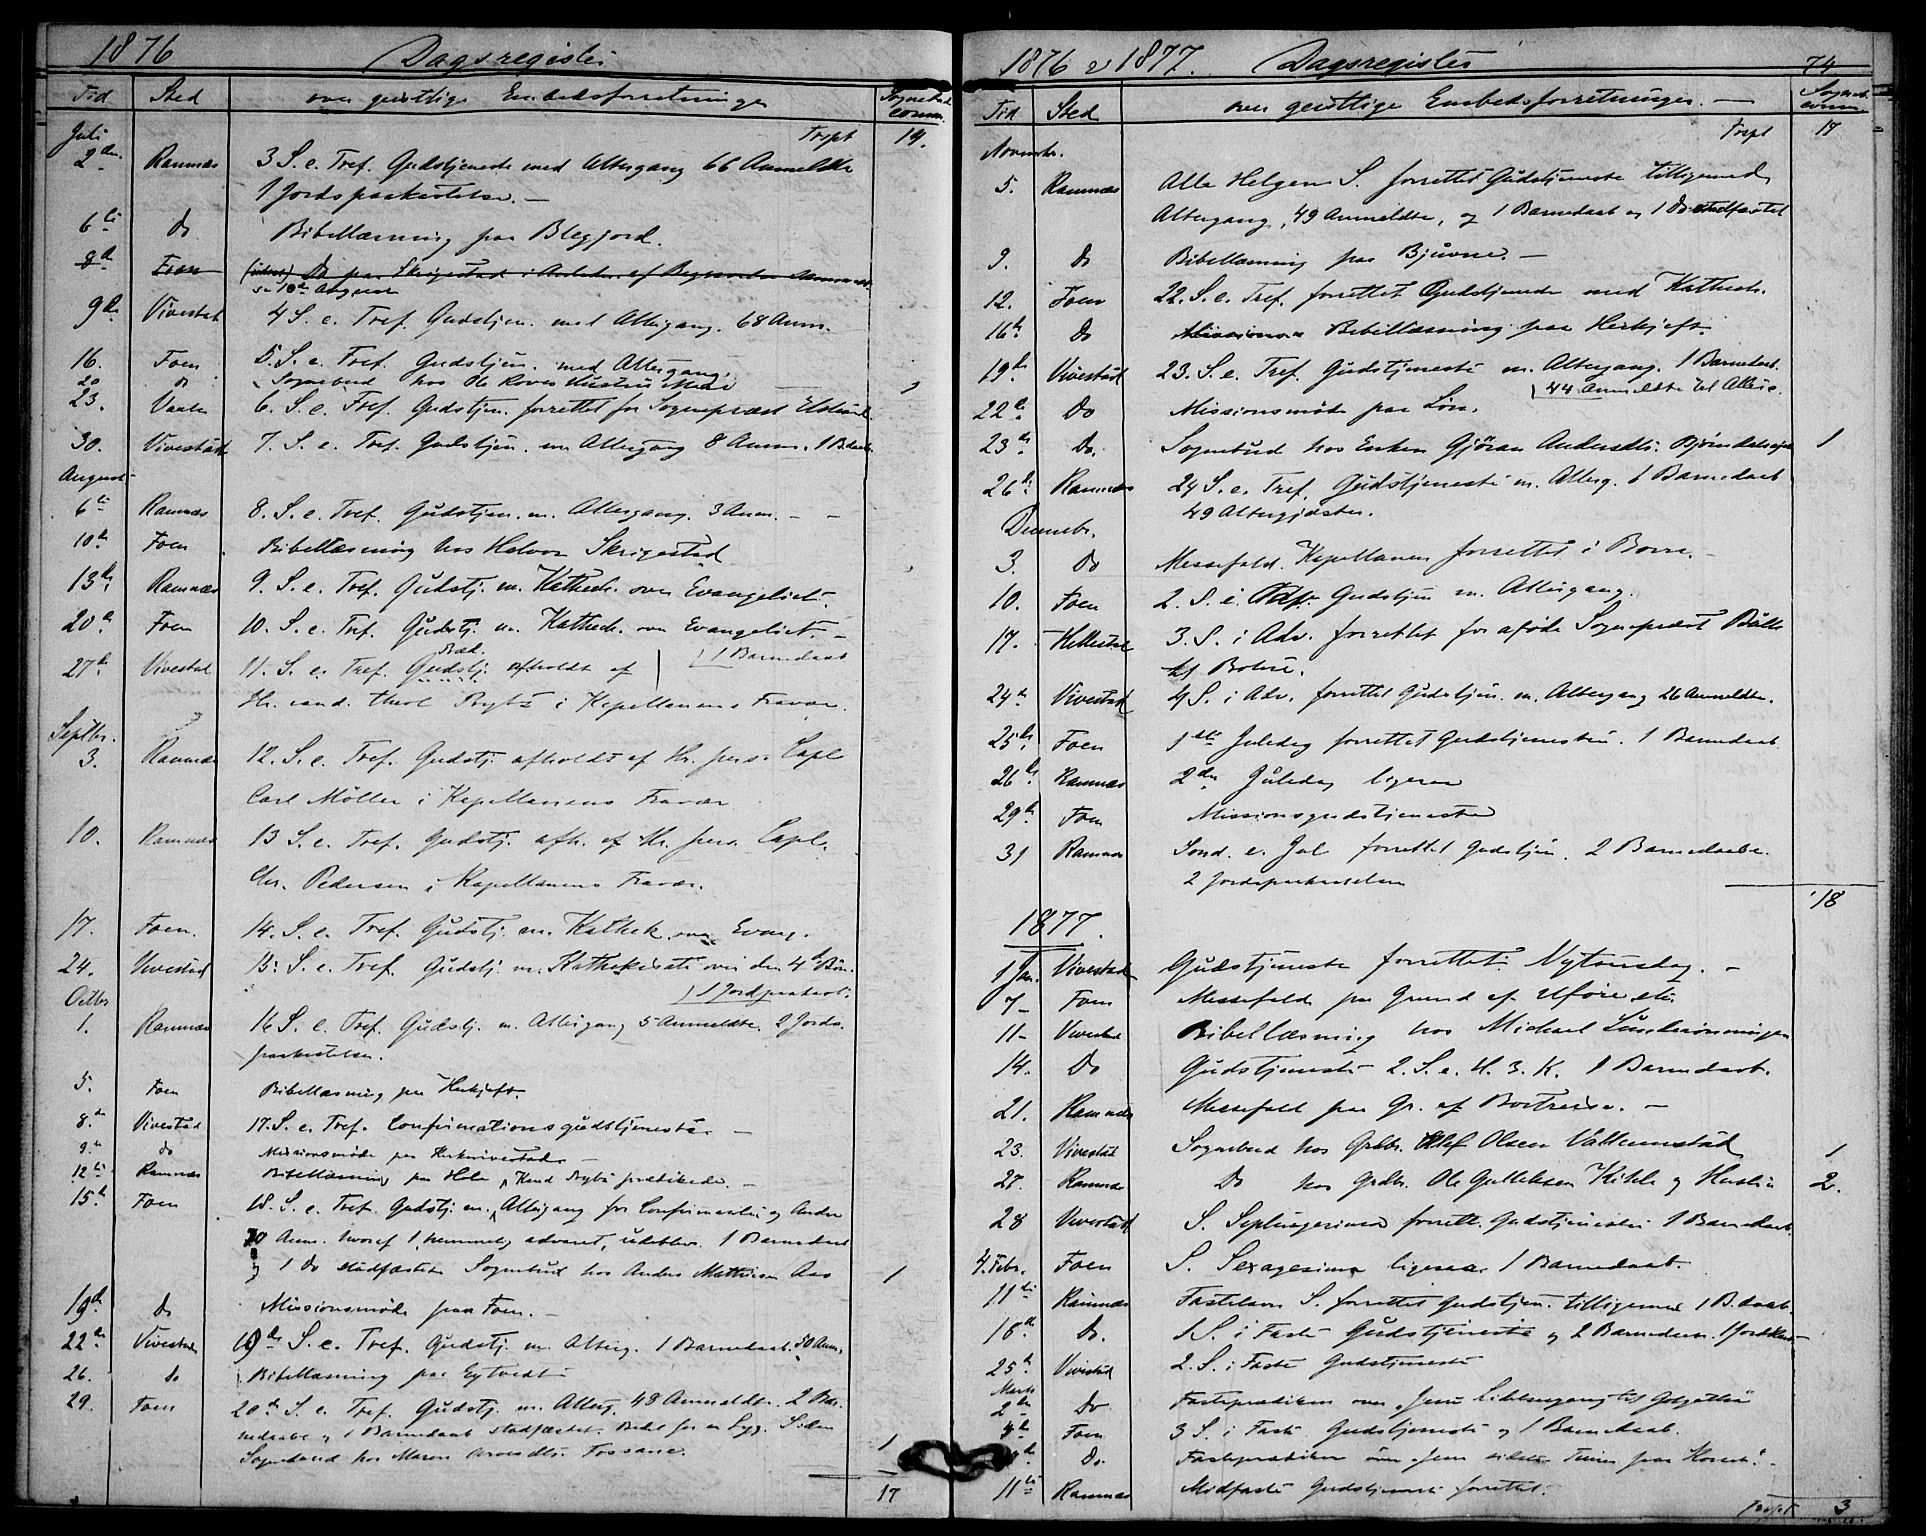 1876 Dagsregister
Tid Sted over geistlige Embedsforretninger Sognebud comm.
Juli Trspt 14.
2den Ramnæs 3 S. e. Tref. Gudstjeneste med Altergang 66 Anmeldte
1 Jordspaakastelse. —
6te Do Bibellæsning paa Blegjord.
8de Foen Do paa Skrigestad
se 10de August
9de Vivestad 4 S. e. Tref. Gudstjen. med Altergang. 68 Anm.
16. Foen 5. S. e. Tref. Gudstjen. med Altergang.
20 do Sognebud hos Ole 1
23. Vaale 6. S. e. Tref. Gudstjen. forrettet for Sognepræst
30. Vivestad 7. S. e. Tref. Gudstjen. m. Altergang 8 Anm. 1 B.daab
August
6te Ramnæs 8. S. e. Tref. Gudstjen. m. Altergang. 3 Anm. — —
10de Foen Bibellæsning hos Halvor Skrigestad
13de Ramnæs 9. S. e. Tref. Gudstj. m. Kathech. over Evangeliet.
20de Foen 10. S. e. Tref. Gudstj. m. Kathech. over Evangeliet. —
1 Barnedaab
27de Vivestad 11. S. e. Tref. Gudstj. afholdt af
Hr. cand. theol Brytz i Kapellanens Fravær.
Septbr.
3. Ramnæs 12. S. e. Tref. Gudstj. afholdt af Hr. pers. Capl
Carl Möller i Kapellanens Fravær
10. Ramnæs 13 S. e. Tref. Gudstj. afh. af Hr. pers. Capl.
Chr. Pedersen i Kapellanens Fravær.
17. Foen. 14. S. e. Tref. Gudstj. m. Kathek. over Evang.
24. Vivestad 15. S. e. Tref. Gudstj. m. Kathekisati over den 4de Bön.
1 Jordpaakast.
Octbr
1. Ramnæs 16 S. e. Tref. Gudstj. m. Altergang 5 Anmeldte. 2 Jords-
paakastelser.
5. Foen Bibellæsning paa Herkjefs.
8de Vivestad 17. S. e. Tref. Confirmationsgudstjeneste. —
9de do Missionsmöde paa —
12te Ramnæs Bibellæsning paa Hole, Kand Brytz prædikede. —
15de Foen 18. S. e. Tref. Gudstj. m. Altergang for Confirmanter og Andre
70 Anm. hvoraf 1, nemmelig advaret, udeblev. 1 Barnedaab
og 1 Do stadfæstet Sognebud hos Anders Mathisen Aas 1
19de Do Missionsmöde paa Foen. —
22de Vivestad 19de S. e. Tref. Gudstj. m. Alterg. 1 Barnedaab. 30 Anm.
26. do Bibellæsning paa Eytvedt
29. Foen 20de S. e. Tref. Gudstj. m. Alterg. 48 Anmeldte. 2 Bar-
nedaabe og 1 Barnedaab stadfæstet. Bedet for en Syg. Siden
Sognebud hos Maren Arvesdtr. Fossane. 1
17
1876 & 1877. Dagsregister 74
Tid Sted over geistlige Embedsforretninger. — Sogneb. comm.
Trspt 17
Novembr.
5. Ramnæs Alle Helgens S. forrettet Gudstjeneste tilligemed
Altergang, 49 Anmeldte, og 1 Barnedaab og 1 Do stadfæstet
9. Do Bibellæsning paa Bjuvne. —
12. Foen 22. S. e. Tref. forrettet Gudstjeneste med Kathech.
16de Do Bibellæsning paa Herkjefs.
19de Vivestad 23. S. e. Tref. Gudstjeneste m. Altergang. 1 Barnedaab.
44 Anmeldte til Alters.
22de Do Missionsmöde paa Lön.
23de Do. Sognebud hos Enken Gjöran Andersdtr. 1
26de Ramnæs 24 S. e. Tref. Gudstjeneste m. Alterg. 1 Barnedaab
49 Altergjæster.
Decembr.
3. Do Messefald. Kapellanen forrettet i Borre. —
10. Foen 2. S. i Adv. Gudstjen m. Altergang.
17. Hillestad 3. S. i Adv. forrettet for afdöde Sognepræst
Botne.
24de Vivestad 4 S. i Adv. forrettet Gudstjen. m. Altergang 26 Anmeldte.
25de Foen 1ste Juledag forrettet Gudstjenesten. 1 Barnedaab
26de Ramnæs 2den Juledag ligesaa
29de Foen Missionsgudstjeneste
31 Ramnæs Sönd. e. Jul forrettet Gudstjen. 2 Barnedaabe.
2 Jordspaakastelser
18
1877.
1 Jan. Vivestad Gudstjeneste forrettet Nytaarsdag. —
7 — Foen Messefald paa Grund af Uföre etc.
11 — Vivestad Bibellæsning hos Michael
14. Do Gudstjeneste 2. S. e. H. 3. K. 1 Barnedaab.
21. Ramnæs Messefald paa Gr. af Bortreise. —
23. Vivestad Sognebud hos Grdbr. Olef Olsen Vallumstad 1
27. Ramnæs Do hos Grdbr. Ole Gulliksen Kihle og Hustru 2.
28 Vivestad S. Septuagesima forrett. Gudstjenesten 1 Barnedaab.
4. Febr. Foen S. Sexagesima ligesaa 1 Barnedaab.
11te Ramnæs Fastelavns S. forrettet Gudstjen. tilligemed 1 B.daab.
18de Do. 1 S. i Faste Gudstjeneste og 2 Barnedaab. 1 Jordkast
25de Vivestad 2. S. i Faste Gudstjeneste
Marts
2den Do Fasteprædiken over „Jesu Lidelsesgang til Golgatha"
4de Foen 3 S. i Faste Gudstjeneste og 1 Barnedaab.
Do. Fasteprædiken over „Jesu sidste Timer paa Korset". —
11te Ramnæs Midfaste Gudstjeneste forrettet.
Trspt 3